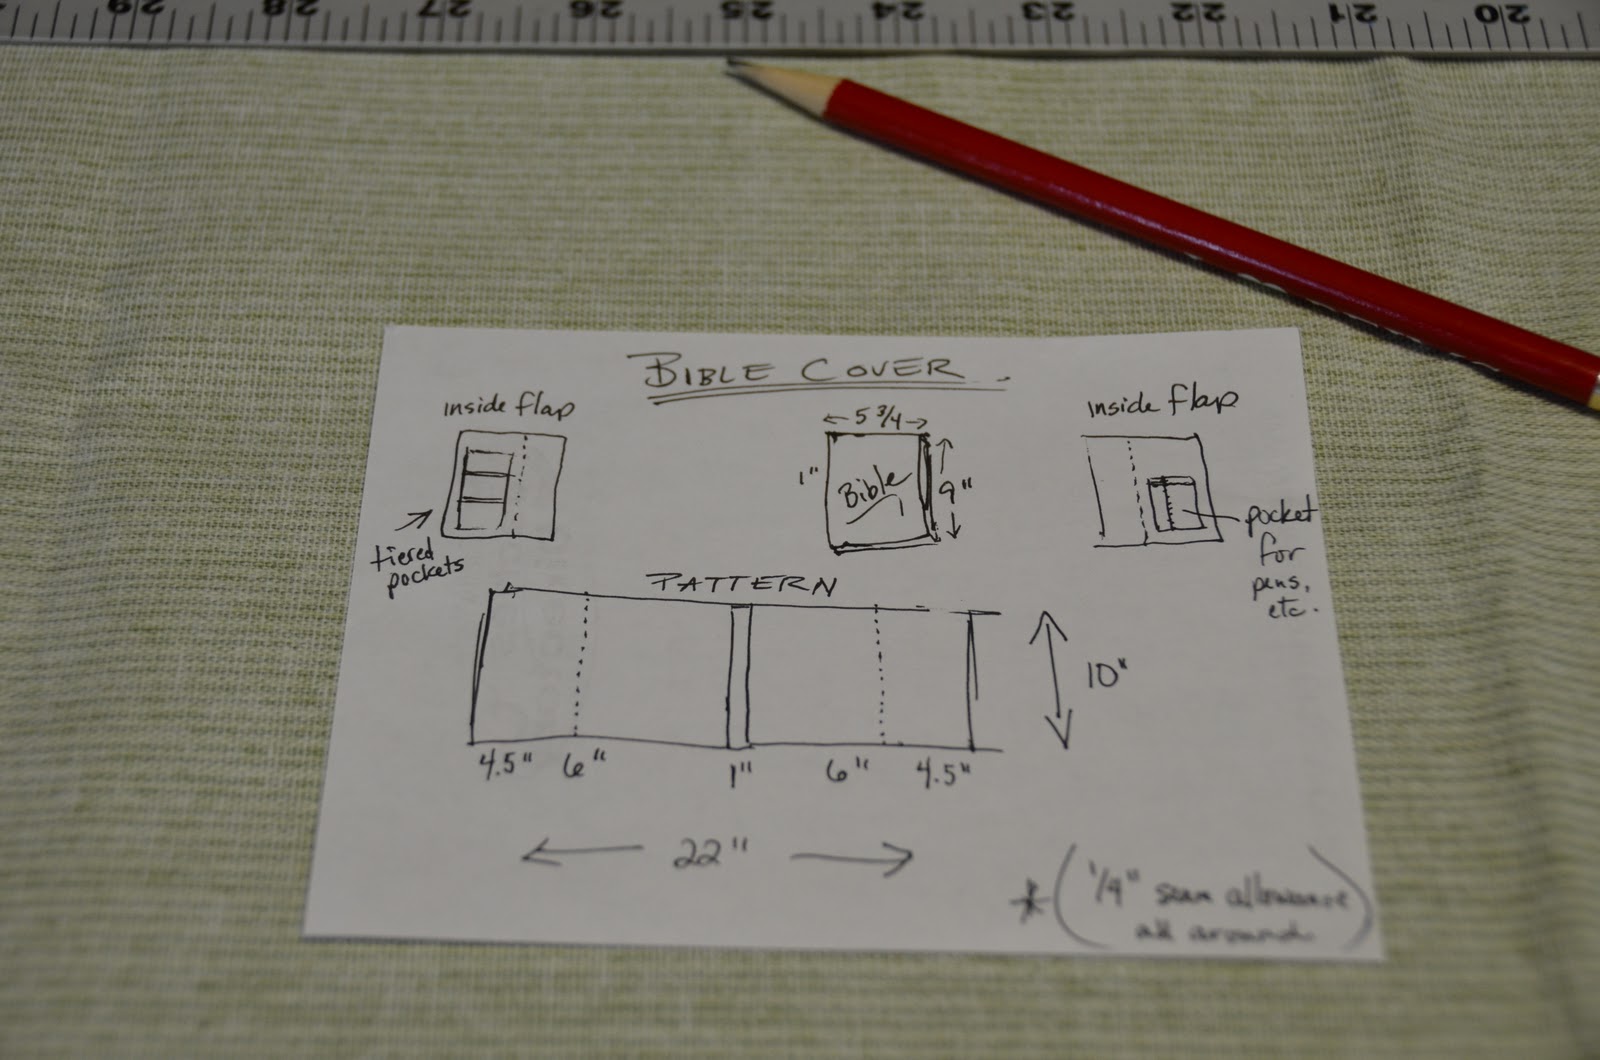 29 28 27 26 25 24 23 22 21 20
BIBLE COVER
inside flap
5 3/4
inside flap
1"
Bible
9"
tiered
pockets
pocket
for
pens,
etc.
PATTERN
10"
4.5" 6" 1" 6" 4.5"
22"
* (1/4" seam allowance
all around)